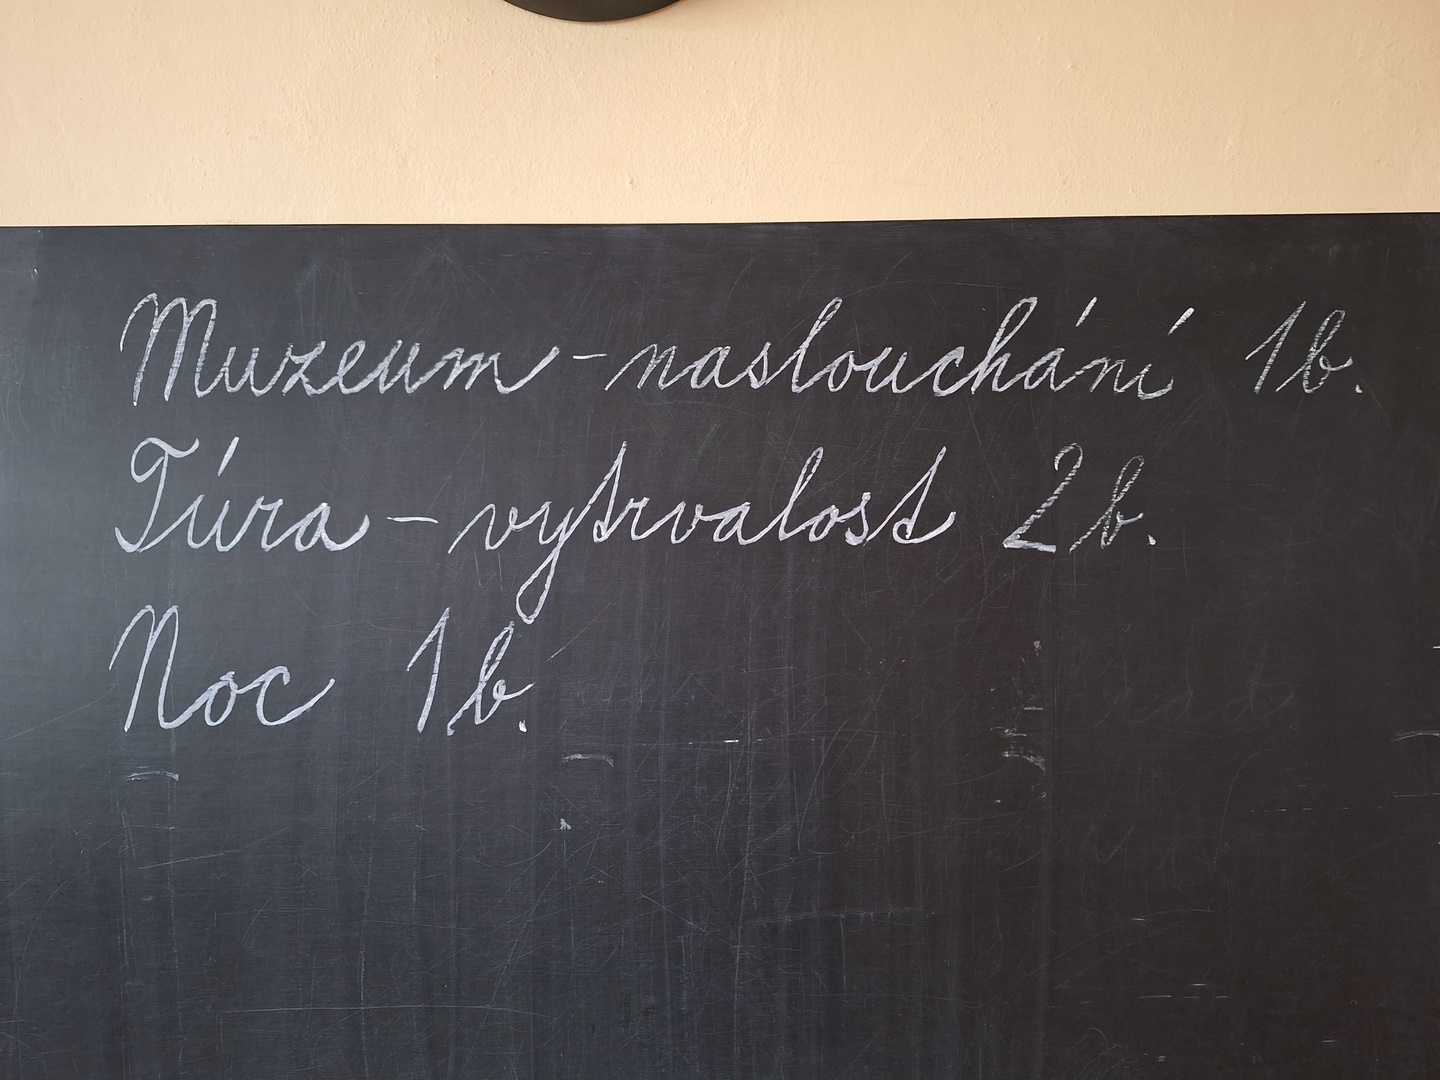 Muzeum - naslouchání 1b.
Túra - vytrvalost 2b.
Noc 1b.